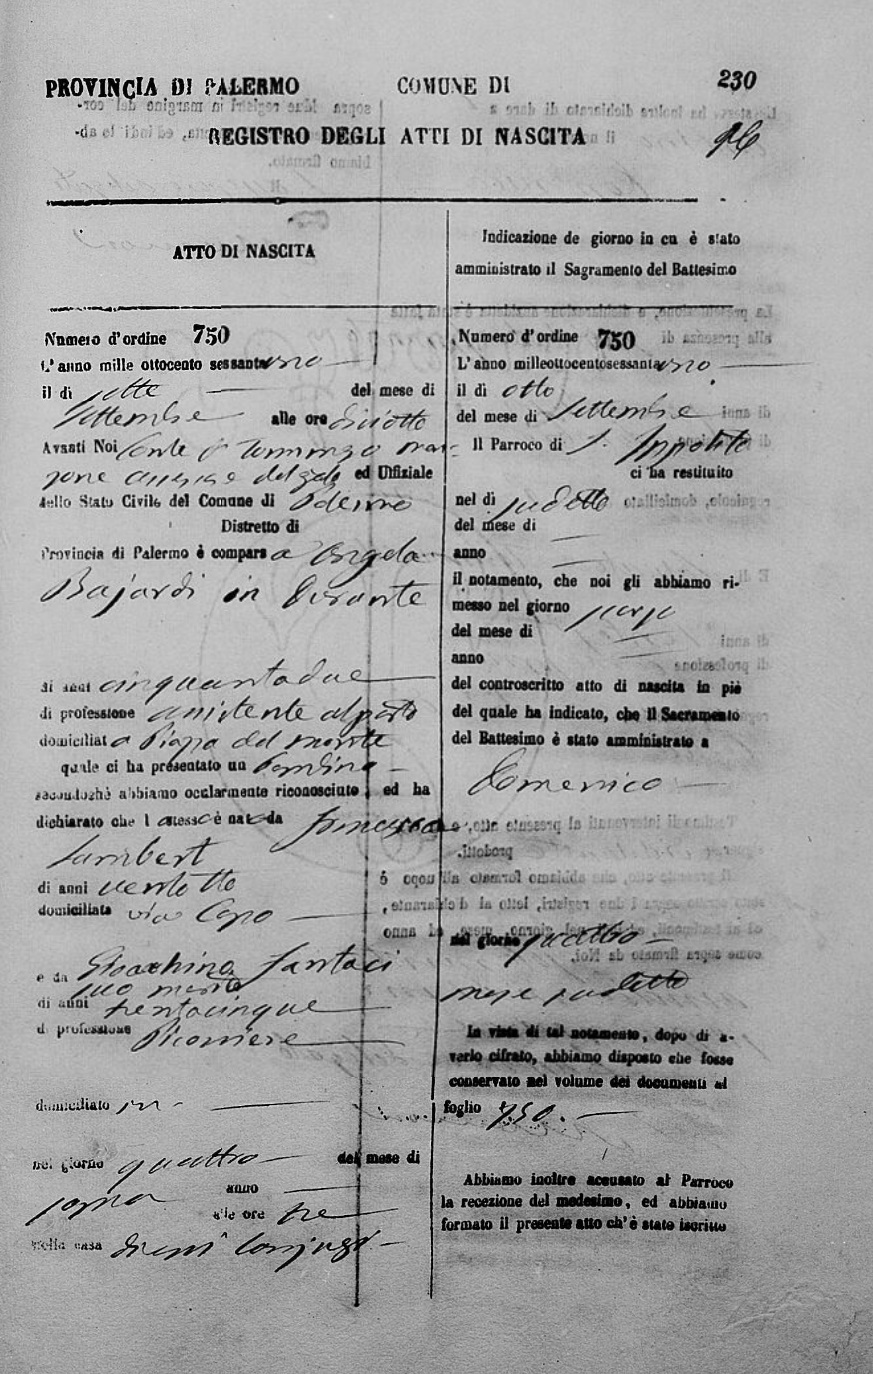 PROVINCIA DI PALERMO COMUNE DI 230
REGISTRO DEGLI ATTI DI NASCITA
ATTO DI NASCITA
Numero d'ordine 750
L'anno mille ottocento sessantauno
il di sette del mese di
Settembre alle ore diciotto
Avanti Noi Conte
ed Uffiziale
dello Stato Civile del Comune di Palermo
Distretto di
Provincia di Palermo è comparsa Angela
Bajardi in Durante
di anni cinquantadue
di professione assistente al parto
domiciliata Piazza del monte
quale ci ha presentato un Bambino
secondochè abbiamo ocularmente riconosciuto, ed ha
dichiarato che l stesso è nato da Francesca
Lambert
di anni ventotto
domiciliata via Capo
e da Gioachino Fantaci
suo marito
di anni trentacinque
di professione
domiciliato ivi
nel giorno quattro del mese di
anno
alle ore tre
nella casa di essi conjugi
Indicazione de giorno in cu è stato
amministrato il Sagramento del Battesimo
Numero d'ordine 750
L'anno milleottocentosessantauno
il dì otto
del mese di Settembre
Il Parroco di S. Ippolito
ci ha restituito
nel dì sudetto
del mese di
anno
il notamento, che noi gli abbiamo ri-
messo nel giorno
del mese di
anno
del controscritto atto di nascita in piè
del quale ha indicato, che il Sacramento
del Battesimo è stato amministrato a
Domenico
nel giorno quattro
mese sudetto
In vista di tal notamento, dopo di a-
verlo cifrato, abbiamo disposto che fosse
conservato nel volume dei documenti al
foglio 750.
Abbiamo inoltre accusato al Parroco
la recezione del medesimo, ed abbiamo
formato il presente atto ch'è stato iscritto